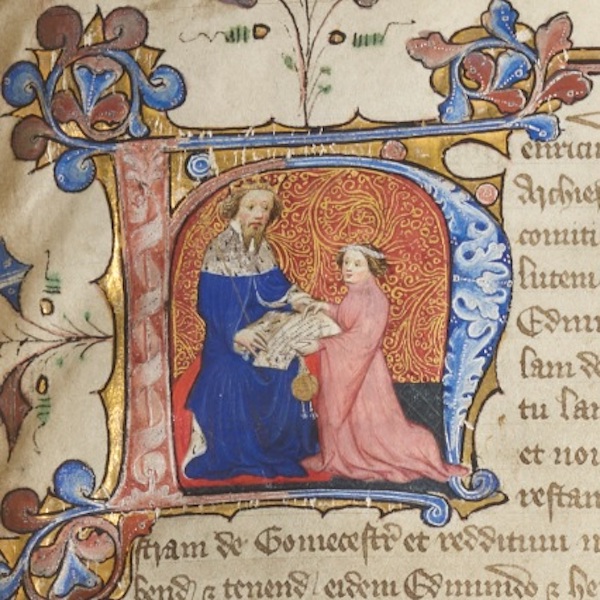 Henricu
Archiep
comiti
lutem
Edmu
lam de
tu lan
et nou
restam
stram de Gomecestr̄ et redditum
hend ⁊ tenend eidem Edmundo ⁊ he